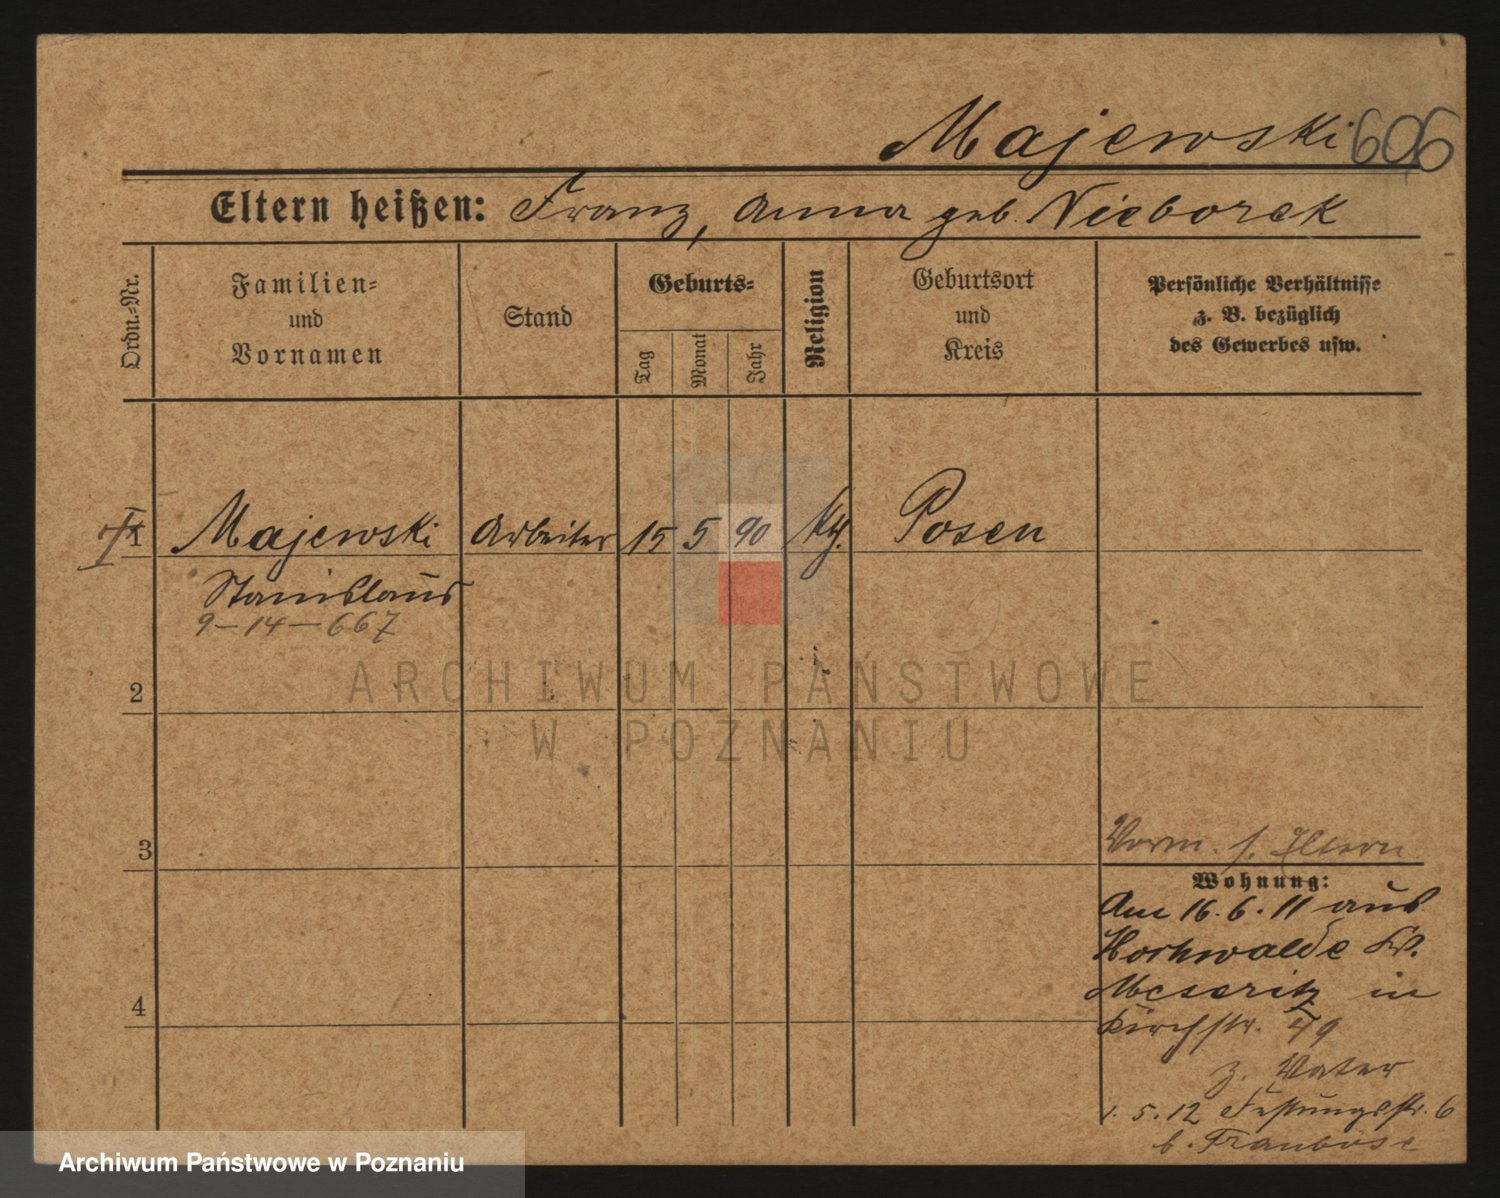 Majewski 606
Eltern heißen: Franz, Anna geb. Nieborek
Ordn.-Nr.
Familien-
und
Vornamen
Stand
Geburts-
Tag
Monat
Jahr
Religion
Geburtsort
und
Kreis
Persönliche Verhältnisse
z. B. bezüglich
des Gewerbes usw.
1 Majewski Arbeiter 15 5 90 Posen
Stanislaus
9-14-667
2
3
4
Vorm. s. Eltern
Wohnung:
Am 16.6.11 aus
Hochwalde Kr.
Meseritz in
Kirchstr.
z. Vater
1.5.12 Festungsstr. 6
b.
ARCHIWUM PAŃSTWOWE
W POZNANIU
Archiwum Państwowe w Poznaniu